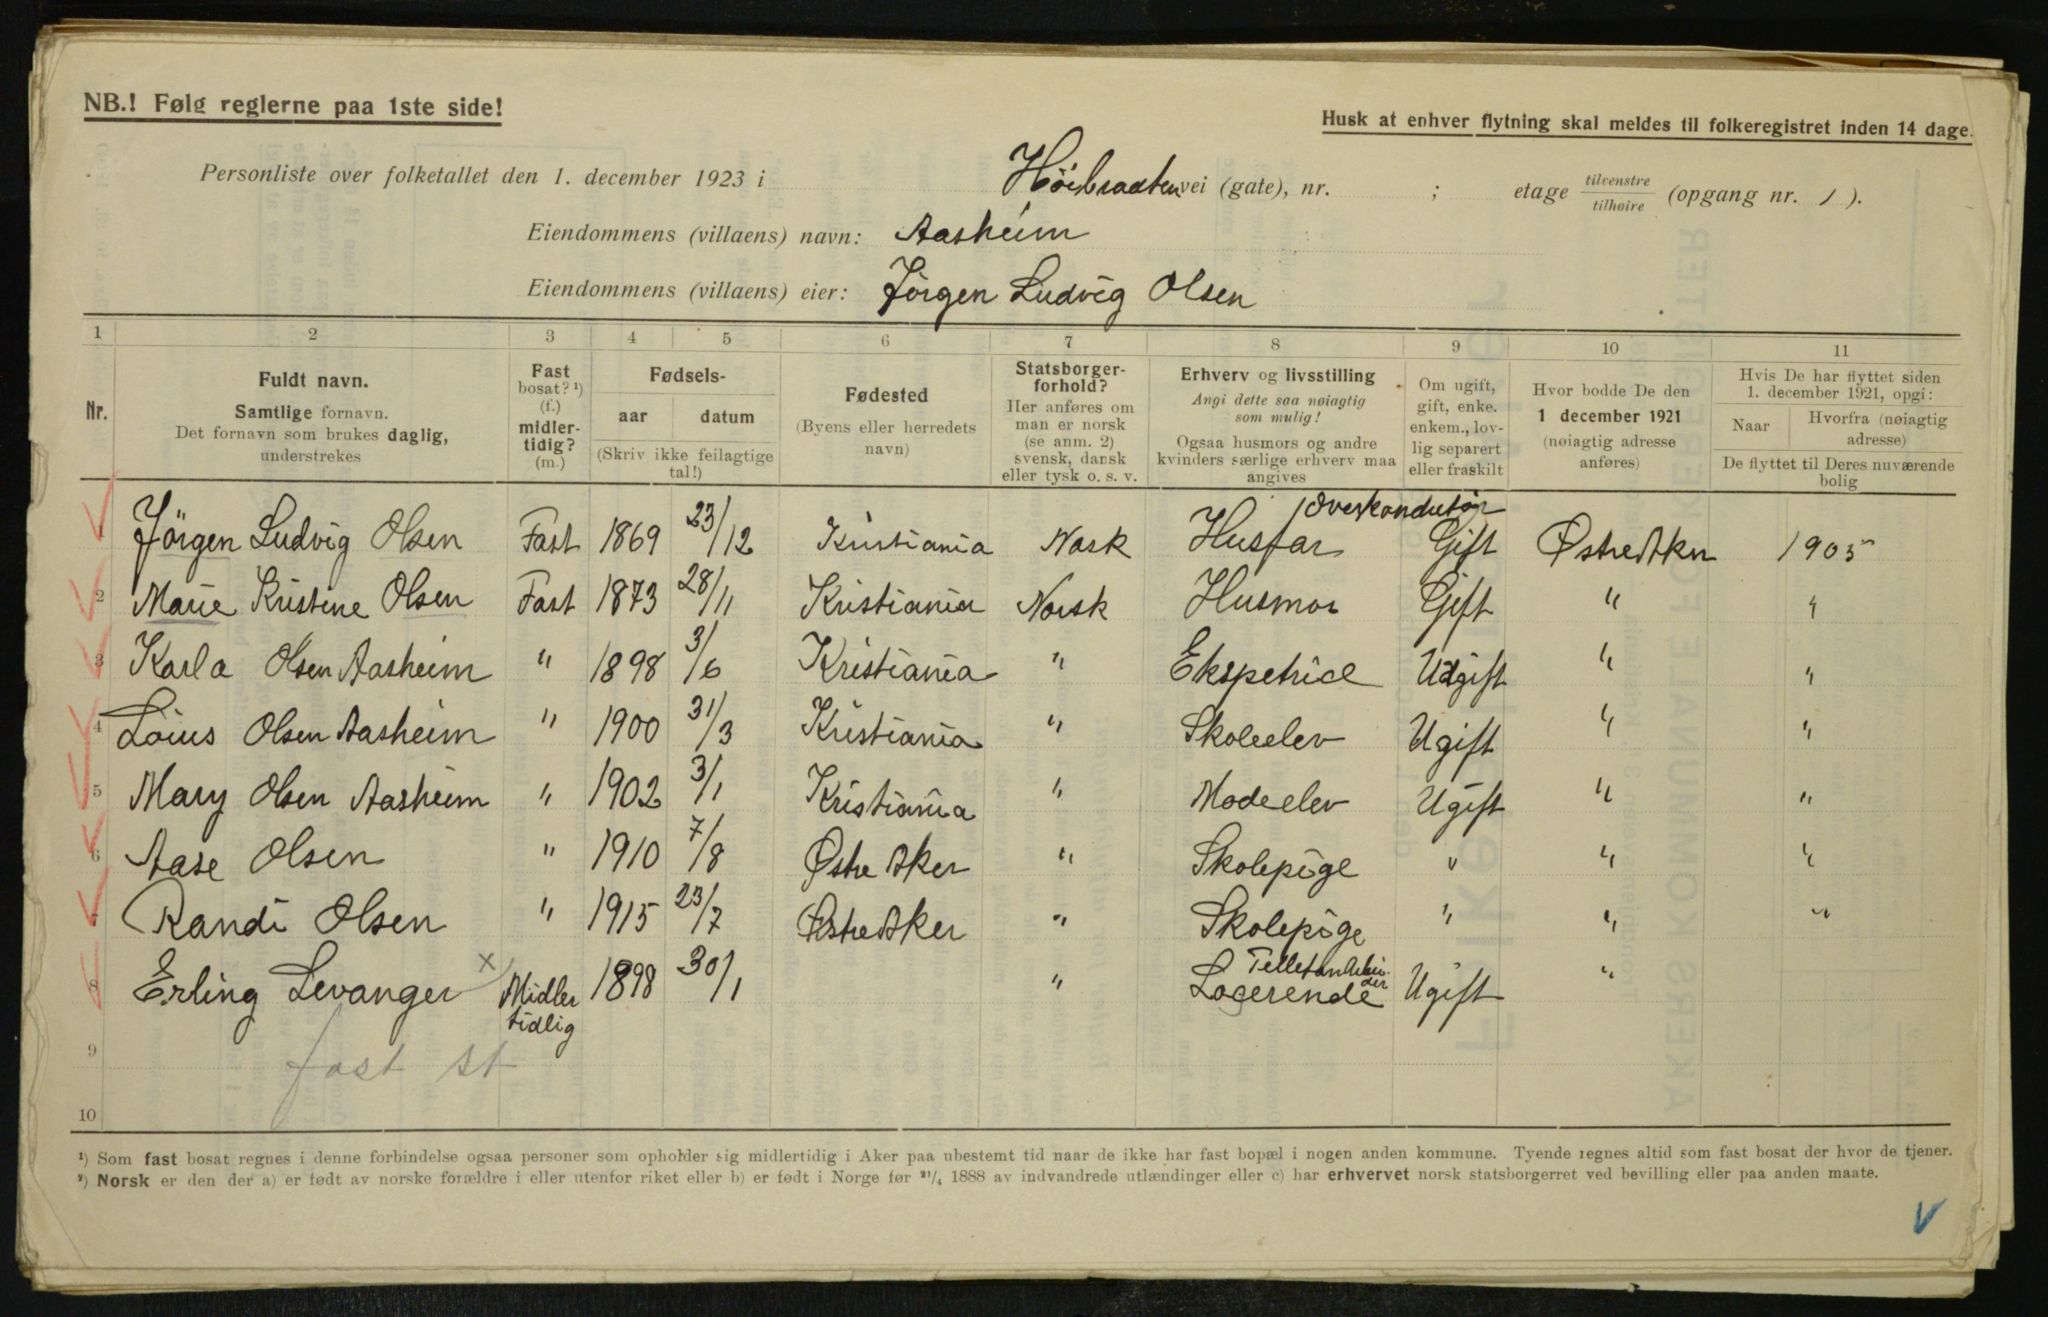 NB.! Følg reglerne paa 1ste side!
Husk at enhver flytning skal meldes til folkeregistret inden 14 dage.
Personliste over folketallet den 1. december 1923 i Høibraaten vei (gate), nr. ; etage tilvenstre tilhøire (opgang nr. 1 ).
Eiendommens (villaens) navn: Aasheim
Eiendommens (villaens) eier: Jörgen Ludvig Olsen
1 2 3 4 5 6 7 8 9 10 11
Nr.
Fuldt navn.
Samtlige fornavn.
Det fornavn som brukes daglig,
understrekes
Fast
bosat? ¹)
(f.)
midler-
tidig?
(m.)
Fødsels-
aar datum
(Skriv ikke feilagtige
tal!)
Fødested
(Byens eller herredets
navn)
Statsborger-
forhold?
Her anføres om
man er norsk
(se anm. 2)
svensk, dansk
eller tysk o. s. v.
Erhverv og livsstilling
Angi dette saa nøiagtig
som mulig!
Ogsaa husmors og andre
kvinders særlige erhverv maa
angives
Om ugift,
gift, enke.
enkem., lov-
lig separert
eller fraskilt
Hvor bodde De den
1 december 1921
(nøiagtig adresse
anføres)
Hvis De har flyttet siden
1. december 1921, opgi:
Naar Hvorfra (nøiagtig
adresse)
De flyttet til Deres nuværende
bolig
1 Jörgen Ludvig Olsen Fast 1869 23/12 Kristiania Norsk Husfar /Overkonduktör Gift Østre Aker 1905
2 Marie Kristine Olsen Fast 1873 28/11 Kristiania Norsk Husmor Gift " "
3 Karla Olsen Aasheim " 1898 3/6 Kristiania " Ekspetrice Udgift " "
4 Loius Olsen Aasheim " 1900 31/3 Kristiania " Skoleelev Ugift " "
5 Mary Olsen Aasheim " 1902 3/1 Kristiania " Modeelev Ugift " "
6 Aase Olsen " 1910 7/8 Østre Aker " Skolepige " " "
7 Randi Olsen " 1915 23/7 Østre Aker " Skolepige " " "
8 Erling Levanger x Midler 1898 30/1 " Logerende Ugift "
tidlig
9 fast st
10
¹) Som fast bosat regnes i denne forbindelse ogsaa personer som opholder sig midlertidig i Aker paa ubestemt tid naar de ikke har fast bopæl i nogen anden kommune. Tyende regnes altid som fast bosat der hvor de tjener.
²) Norsk er den der a) er født av norske forældre i eller utenfor riket eller b) er født i Norge før ²¹/₄ 1888 av indvandrede utlændinger eller c) har erhvervet norsk statsborgerret ved bevilling eller paa anden maate.